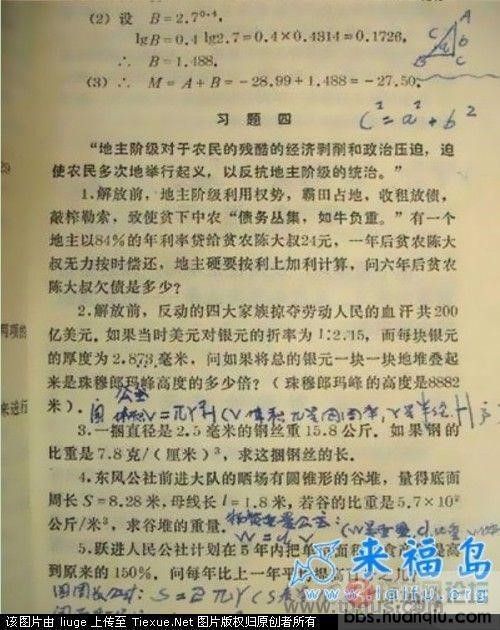 (2) 设 B=2.7⁰·⁴,
lgB=0.4 lg2.7=0.4×0.4314=0.1726,
∴ B=1.488,
(3) ∴ M=A+B=-28.99+1.488=-27.50.
A
c
b
B
a
C
习题四
c²=a²+b²
“地主阶级对于农民的残酷的经济剥削和政治压迫，迫
使农民多次地举行起义，以反抗地主阶级的统治。”
1.解放前，地主阶级利用权势，霸田占地，收租放债，
敲榨勒索，致使贫下中农“债务丛集，如牛负重。”有一个
地主以84%的年利率贷给贫农陈大叔24元，一年后贫农陈大
叔无力按时偿还，地主硬要按利上加利计算，问六年后贫农
陈大叔欠债是多少？
2.解放前，反动的四大家族掠夺劳动人民的血汗共200
亿美元.如果当时美元对银元的折率为1:2.15，而每块银元
的厚度为2.873毫米，问如果将总的银元一块一块地堆叠起
来是珠穆郎玛峰高度的多少倍？(珠穆郎玛峰的高度是8882
米).
公式
3.一捆直径是2.5毫米的钢丝重15.8公斤.如果钢的
比重是7.8克/(厘米)³，求这捆钢丝的长.
4.东风公社前进大队的晒场有圆锥形的谷堆，量得底面
周长S=8.28米.母线长l=1.8米，若谷的比重是5.7×10²
公斤/米³，求谷堆的重量.
5.跃进人民公社计划在5年内把单
面积
产
提高
到原来的150%，问每年比上一年平
来福岛
laifu.org
bbs.huanqiu.com
该图片由 liuge 上传至 Tiexue.Net 图片版权归原创者所有